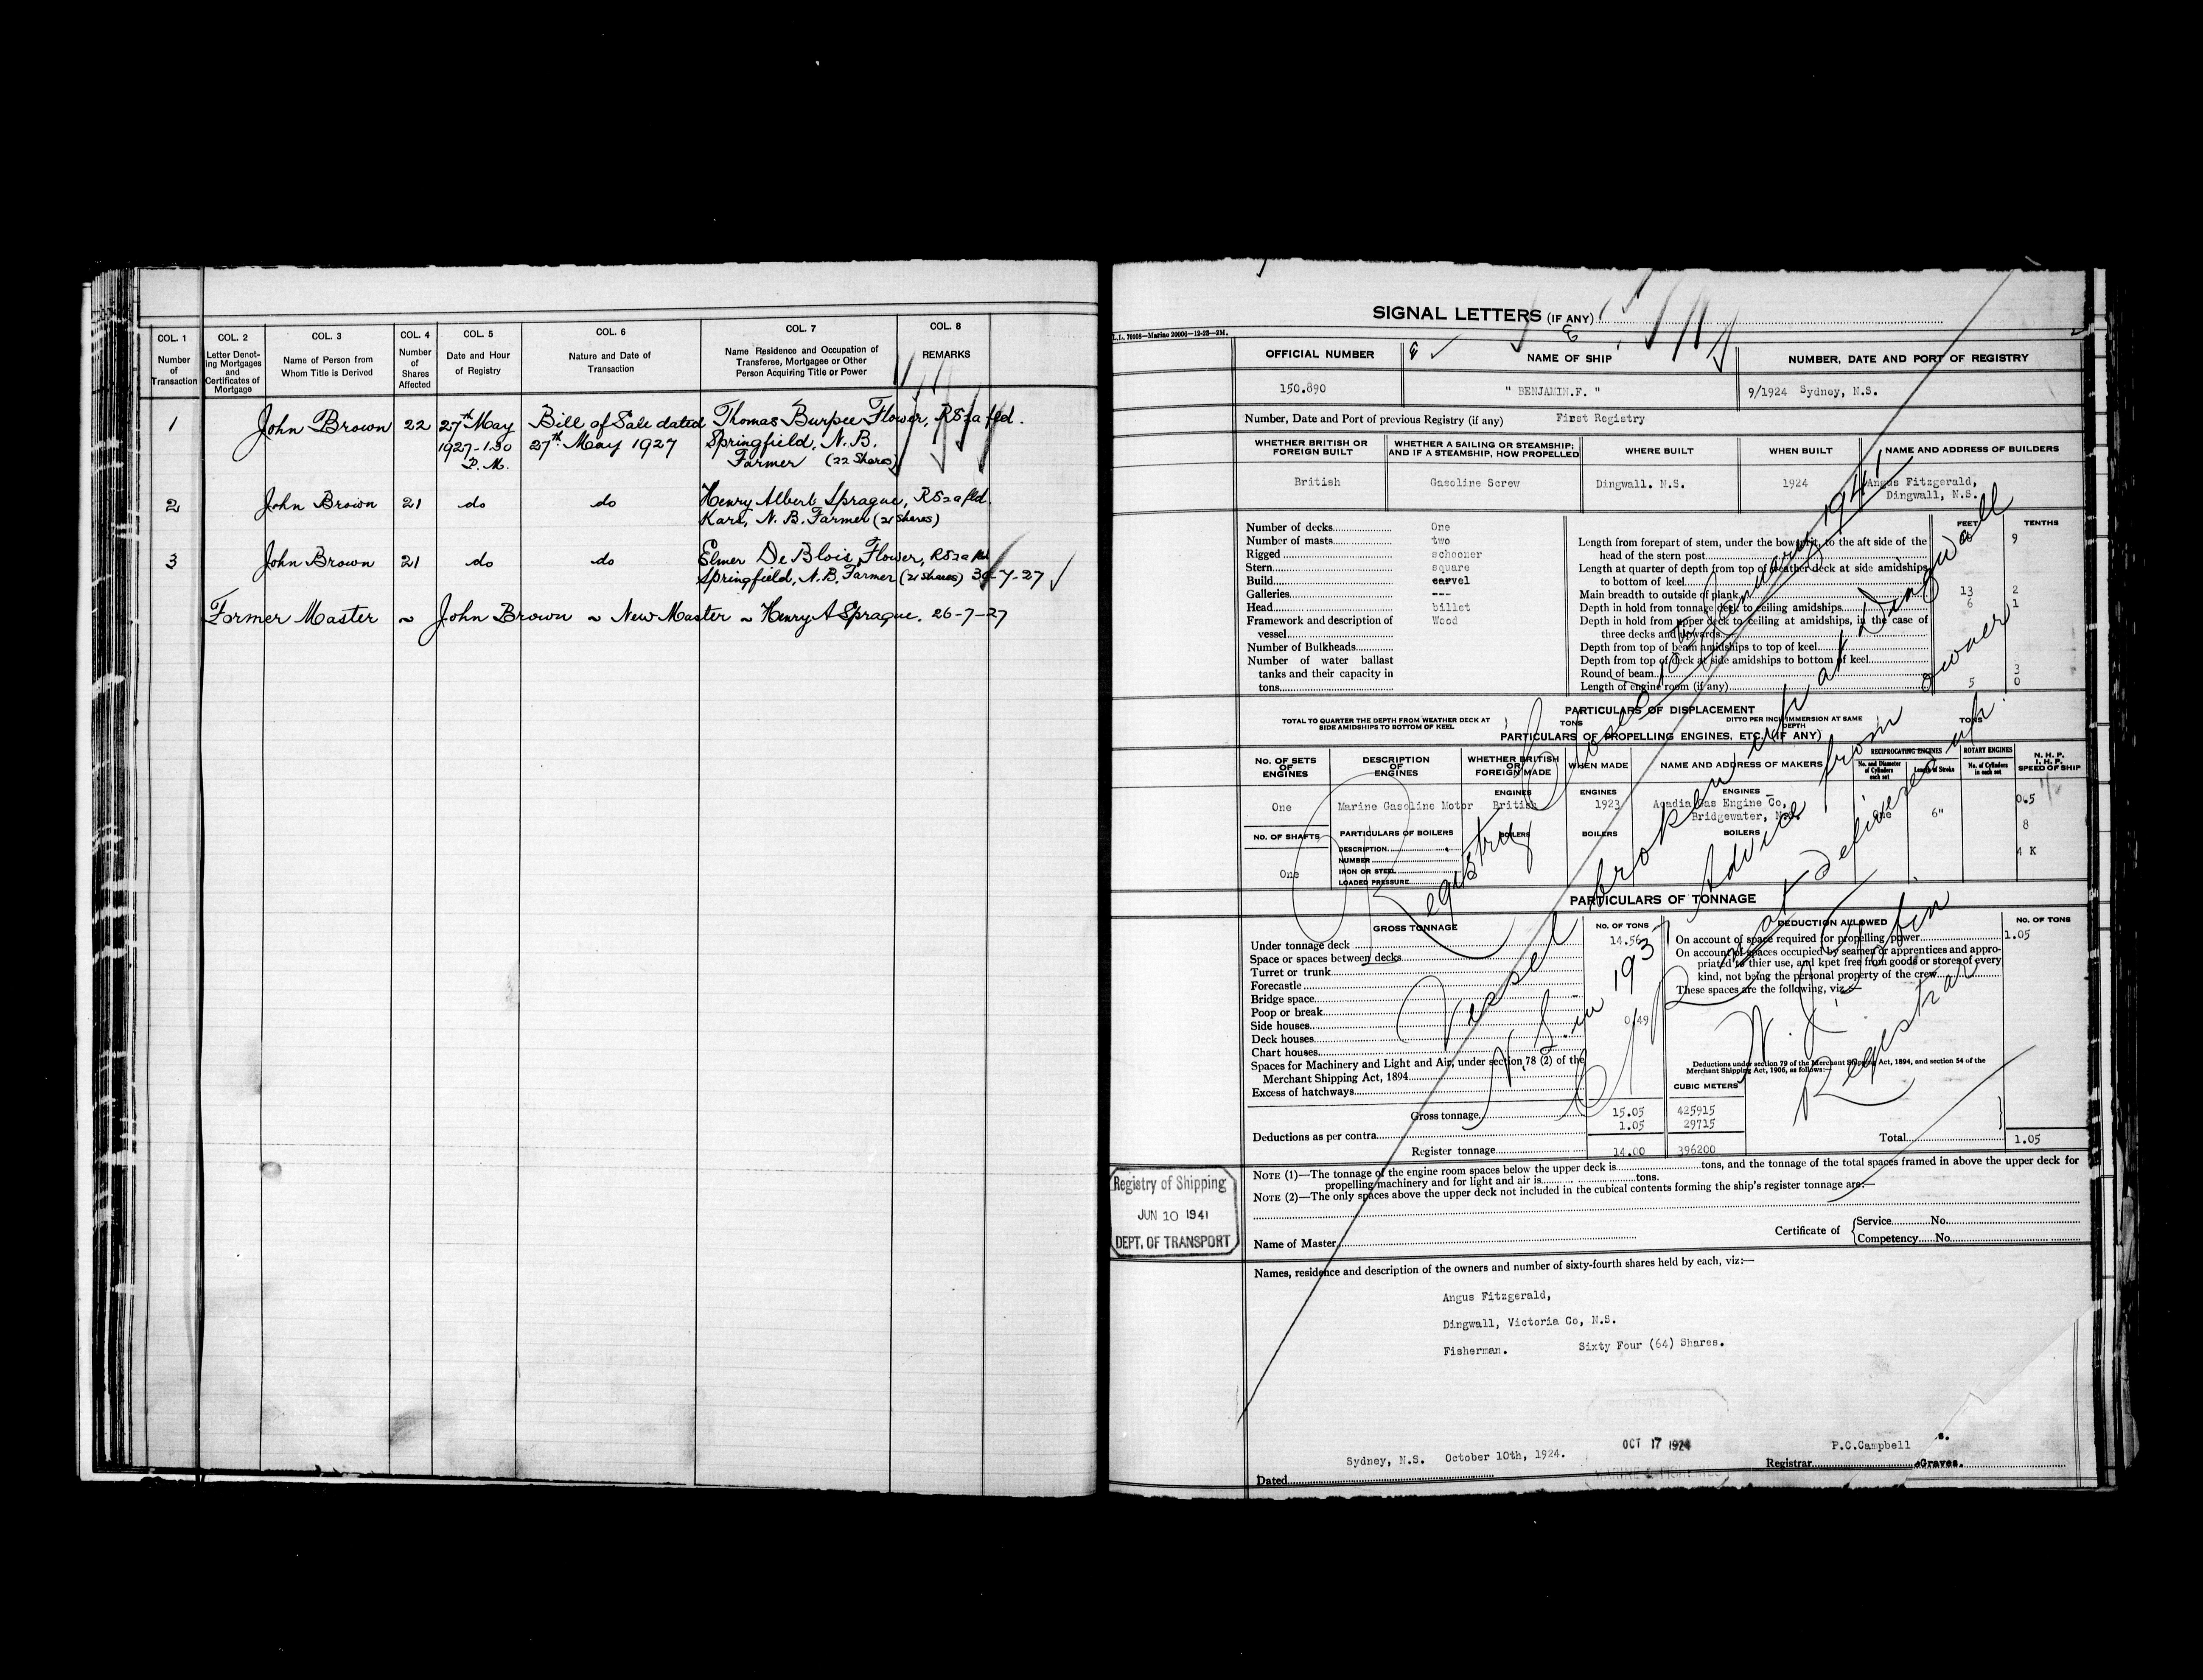 COL. 1 COL. 2 COL. 3 COL. 4 COL. 5 COL. 6 COL. 7 COL. 8
Number of Transaction
Letter Denoting Mortgages and Certificates of Mortgage
Name of Person from Whom Title is Derived
Number of Shares Affected
Date and Hour of Registry
Nature and Date of Transaction
Name Residence and Occupation of Transferee, Mortgagee or Other Person Acquiring Title or Power
REMARKS
1 John Brown 22 27th May Bill of Sale dated Thomas Burpee Flower,
1927-1.30 27th May 1927 Springfield, N.B.
P.M. Farmer (22 Shares)
2 John Brown 21 do do Henry Albert Sprague,
Kars, N.B. Farmer (21 Shares)
3 John Brown 21 do do Elmer De Blois Flower,
Springfield, N.B. Farmer (21 Shares) 30-7-27
Former Master ~ John Brown ~ New Master ~ Henry A Sprague. 26-7-27
SIGNAL LETTERS (IF ANY)
L.I. 70108—Marine 20006—12-23—2M.
OFFICIAL NUMBER NAME OF SHIP NUMBER, DATE AND PORT OF REGISTRY
150.890 " BENJAMIN.F. " 9/1924 Sydney, N.S.
Number, Date and Port of previous Registry (if any) First Registry
WHETHER BRITISH OR FOREIGN BUILT
WHETHER A SAILING OR STEAMSHIP; AND IF A STEAMSHIP, HOW PROPELLED
WHERE BUILT
WHEN BUILT
NAME AND ADDRESS OF BUILDERS
British Gasoline Screw Dingwall. N.S. 1924 Angus Fitzgerald,
Dingwall, N.S.
FEET TENTHS
Number of decks One
Number of masts two
Rigged schooner
Stern square
Build carvel
Galleries ---
Head billet
Framework and description of vessel Wood
Number of Bulkheads
Number of water ballast tanks and their capacity in tons
Length from forepart of stem, under the bowsprit, to the aft side of the
head of the stern post 9
Length at quarter of depth from top of weather deck at side amidships
to bottom of keel
Main breadth to outside of plank 13 2
Depth in hold from tonnage deck to ceiling amidships 6 1
Depth in hold from upper deck to ceiling at amidships, in the case of
three decks and upwards
Depth from top of beam amidships to top of keel
Depth from top of deck at side amidships to bottom of keel
Round of beam 3
Length of engine room (if any) 5 0
PARTICULARS OF DISPLACEMENT
TOTAL TO QUARTER THE DEPTH FROM WEATHER DECK AT SIDE AMIDSHIPS TO BOTTOM OF KEEL TONS
DITTO PER INCH IMMERSION AT SAME DEPTH TONS
PARTICULARS OF PROPELLING ENGINES, ETC. (IF ANY)
No. OF SETS OF ENGINES
DESCRIPTION OF ENGINES
WHETHER BRITISH OR FOREIGN MADE
WHEN MADE
NAME AND ADDRESS OF MAKERS
RECIPROCATING ENGINES
No. and Diameter of Cylinders each set
Length of Stroke
ROTARY ENGINES
No. of Cylinders in each set
N. H. P.
I. H. P.
SPEED OF SHIP
ENGINES ENGINES ENGINES
One Marine Gasoline Motor British 1923 Acadia Gas Engine Co,
Bridgewater, N.S. 6"
0.5
8
4 K
No. OF SHAFTS PARTICULARS OF BOILERS BOILERS BOILERS BOILERS
DESCRIPTION
NUMBER
IRON OR STEEL
LOADED PRESSURE
One
PARTICULARS OF TONNAGE
GROSS TONNAGE No. OF TONS DEDUCTION ALLOWED No. OF TONS
Under tonnage deck 14.56
Space or spaces between decks
Turret or trunk
Forecastle
Bridge space
Poop or break
Side houses 0.49
Deck houses
Chart houses
Spaces for Machinery and Light and Air, under section 78 (2) of the
Merchant Shipping Act, 1894
Excess of hatchways
On account of space required for propelling power 1.05
On account of spaces occupied by seamen or apprentices and appro-
priated to thier use, and kpet free from goods or stores of every
kind, not being the personal property of the crew
These spaces are the following, viz.—
Deductions under section 79 of the Merchant Shipping Act, 1894, and section 54 of the
Merchant Shipping Act, 1906, as follows:—
CUBIC METERS
Gross tonnage 15.05 425915
Deductions as per contra 1.05 29715
Register tonnage 14.00 396200
Total 1.05
Registry Closed January 1941
Vessel broken up at Dingwall
N.S. in 1937 Advice from owner
C/R not delivered up.
Registrar
NOTE (1)—The tonnage of the engine room spaces below the upper deck is tons, and the tonnage of the total spaces framed in above the upper deck for
propelling machinery and for light and air is tons.
NOTE (2)—The only spaces above the upper deck not included in the cubical contents forming the ship's register tonnage are:—
Registry of Shipping
JUN 10 1941
DEPT. OF TRANSPORT
Name of Master
Certificate of Service No.
Competency No.
Names, residence and description of the owners and number of sixty-fourth shares held by each, viz:—
Angus Fitzgerald,
Dingwall, Victoria Co, N.S.
Fisherman. Sixty Four (64) Shares.
OCT 17 1924
Dated Sydney, N.S. October 10th, 1924.
Registrar P.C.Campbell